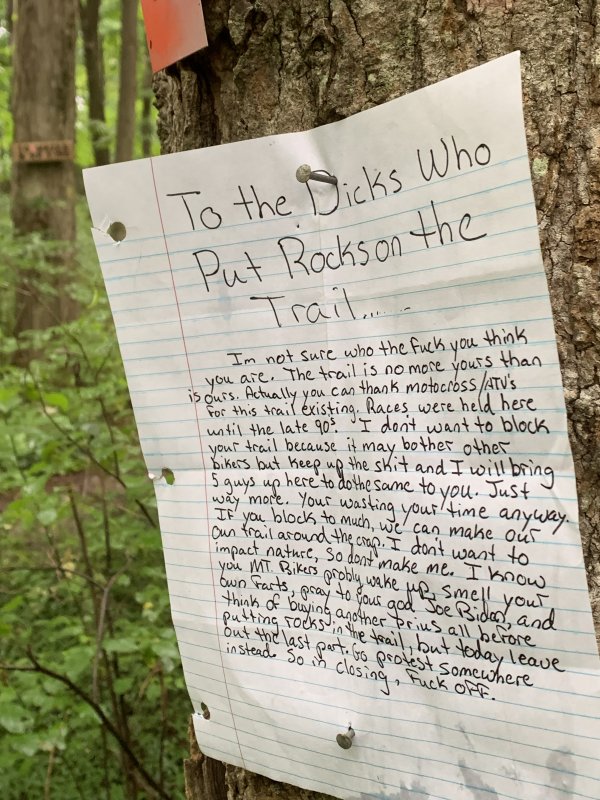 To the Dicks Who
Put Rocks on the
Trail......
Im not sure who the fuck you think
you are. The trail is no more yours than
is ours. Actually you can thank motocross/ATV's
for this trail existing. Races were held here
until the late 90s. I don't want to block
your trail because it may bother other
bikers but keep up the shit and I will bring
5 guys up here to do the same to you. Just
way more. Your wasting your time anyway.
If you block to much, we can make our
own trail around the crap. I don't want to
impact nature, so dont make me. I know
you MT. Bikers probly wake up, smell your
own farts, pray to your god Joe Biden, and
think of buying another prius all before
putting rocks in the trail, but today leave
out the last part. Go protest somewhere
instead. So in closing, Fuck OFF.